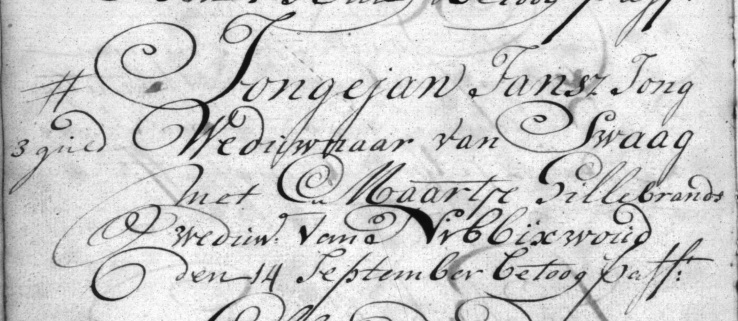 Jongejan Jansz Jong
3 guld Weduwnaar van Swaag
met En Maartje Hillebrands
weduw. van Nibbixwoud
den 14 September betoog pass: